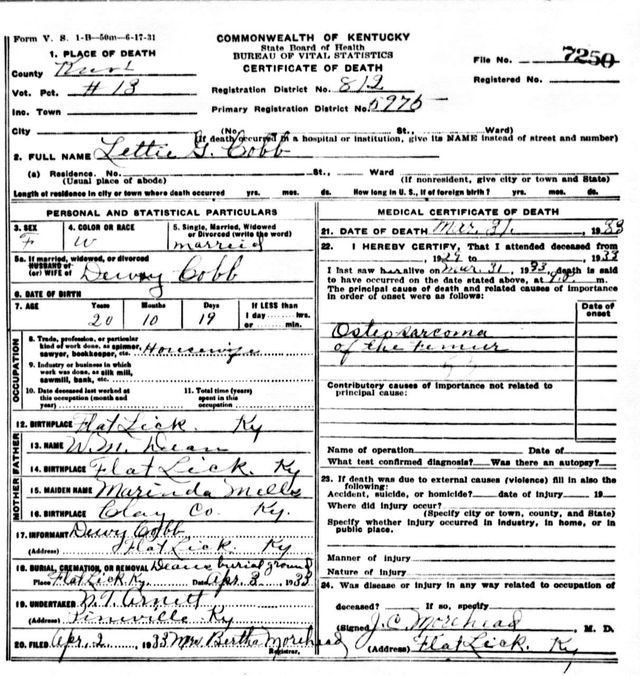 Form V. S. 1-B—50m—6-17-31
COMMONWEALTH OF KENTUCKY
State Board of Health
BUREAU OF VITAL STATISTICS
CERTIFICATE OF DEATH
File No. 7250
Registered No.
1. PLACE OF DEATH
County Knox
Vot. Pct. #13
Inc. Town
Registration District No. 812
Primary Registration District No. 5975
City (No. St., Ward)
(If death occurred in a hospital or institution, give its NAME instead of street and number)
2. FULL NAME Lettie G. Cobb
(a) Residence. No. St., Ward
(Usual place of abode) (If nonresident, give city or town and State)
Length of residence in city or town where death occurred yrs. mos. ds. How long in U. S., if of foreign birth? yrs. mos. ds.
PERSONAL AND STATISTICAL PARTICULARS
3. SEX F
4. COLOR OR RACE W
5. Single, Married, Widowed or Divorced (write the word) marreid
5a. If married, widowed, or divorced
HUSBAND of
(or) WIFE of Dewey Cobb
6. DATE OF BIRTH
7. AGE Years 20 Months 10 Days 19 If LESS than 1 day hrs. or min.
OCCUPATION
8. Trade, profession, or particular kind of work done, as spinner, sawyer, bookkeeper, etc. Housewife
9. Industry or business in which work was done, as silk mill, sawmill, bank, etc.
10. Date deceased last worked at this occupation (month and year)
11. Total time (years) spent in this occupation
12. BIRTHPLACE Flat Lick. Ky
FATHER
13. NAME W.M. Dean
14. BIRTHPLACE Flat Lick. Ky
MOTHER
15. MAIDEN NAME Marinda Mills
16. BIRTHPLACE Clay Co. Ky.
17. INFORMANT Dewy Cobb
(Address) Flat Lick. Ky
18. BURIAL, CREMATION, OR REMOVAL Deans burial ground
Place Flat Lick Ky. Date Apr. 3, 1933
19. UNDERTAKER N.T. Arnett
Pinville. Ky
20. FILED Apr. 2 1933 Mrs. Bertha Morehead
Registrar.
MEDICAL CERTIFICATE OF DEATH
21. DATE OF DEATH Mar. 31, 1933
22. I HEREBY CERTIFY, That I attended deceased from
, 1933
I last saw her alive on Mar. 31, 1933 death is said
to have occurred on the date stated above, at m.
principal cause of death and related causes of importance
in order of onset were as follows:
Date of onset
Osteosarcoma
of the Femur
Contributory causes of importance not related to
principal cause:
Name of operation Date of
What test confirmed diagnosis? Was there an autopsy?
23. If death was due to external causes (violence) fill in also the
following:
Accident, suicide, or homicide? date of injury 19
Where did injury occur?
(Specify city or town, county, and State)
Specify whether injury occurred in industry, in home, or in
public place.
Manner of injury
Nature of injury
24. Was disease or injury in any way related to occupation of
deceased? If so, specify
(Signed) J.C. Morehead, M. D.
(Address) Flat Lick. Ky